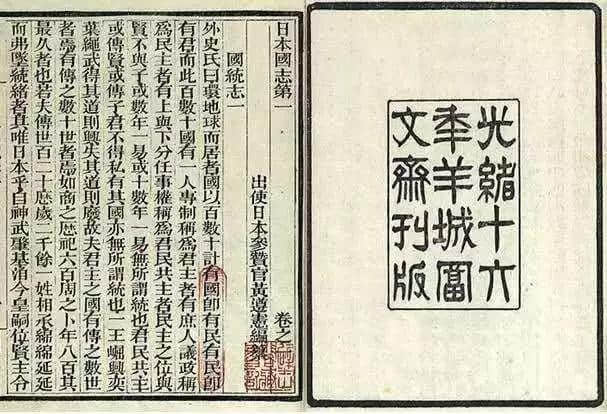 光緒十六
年羊城富
文齋刊版
日本國志第一 卷之
出使日本參贊官黃遵憲編纂
國統志一
外史氏曰環地球而居者國以百數十計有國卽有民有民卽
有君而此百數十國有一人專制稱爲君主者有庶人議政稱
爲民主者有上與下分任事權稱爲君民共主者民主之位與
賢不與子或數年一易或十數年一易無所謂統也君民共主
或傳賢或傳子君不得私有其國亦無所謂統也一王崛興奕
葉繩武得其道則興失其道則廢故夫君主之國有傳之數世
者焉有傳之數十世者焉如商之歷祀六百周之卜年八百其
最久者也若夫傳世百二十歷歲二千餘一姓相承綿綿延延
而弗墜統緒者其唯日本乎自神武肇基洎今皇嗣位賢主令